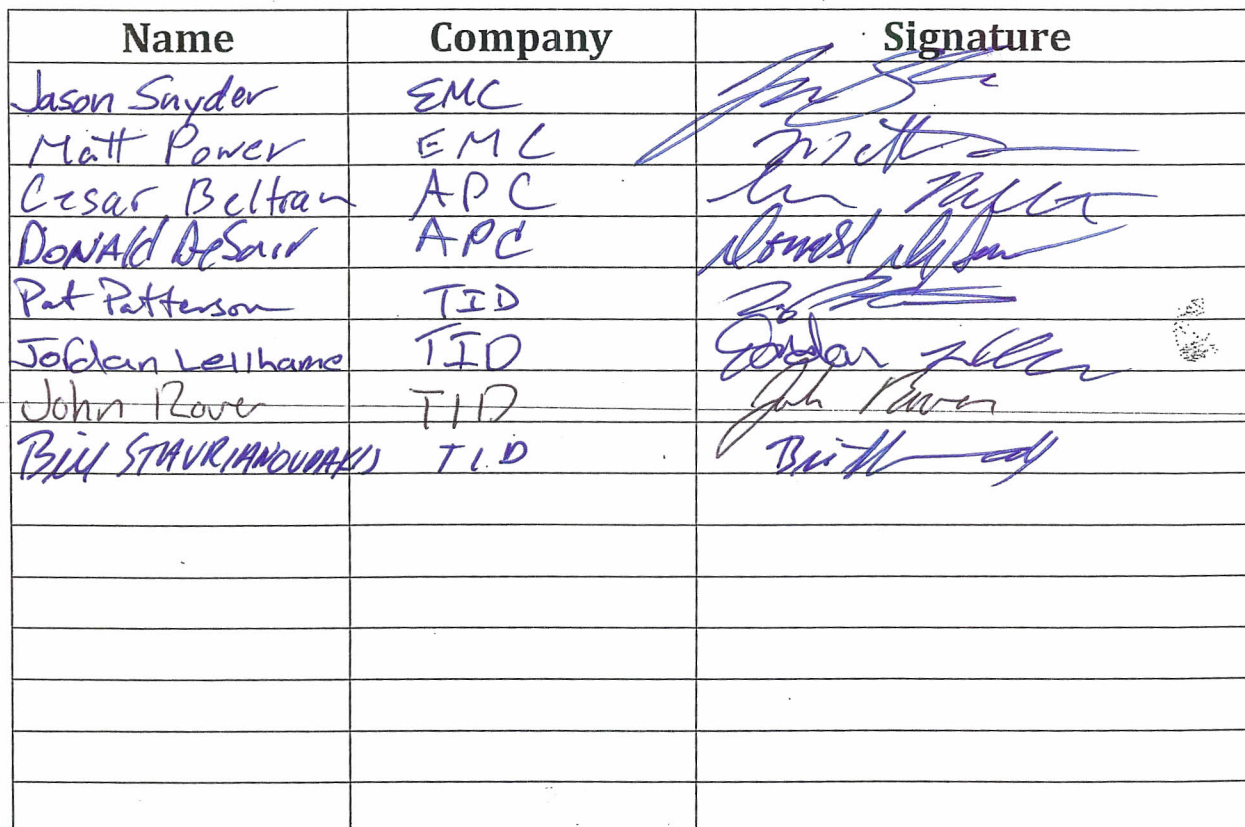 Name Company Signature
Jason Snyder EMC
Matt Power EMC
Cesar Beltran APC
DONALD DeSair APC Donald
Pat Patterson TID
Jordan TID Jordan
John Rover TID John
Bill STAVRIANOUDAKIS TID